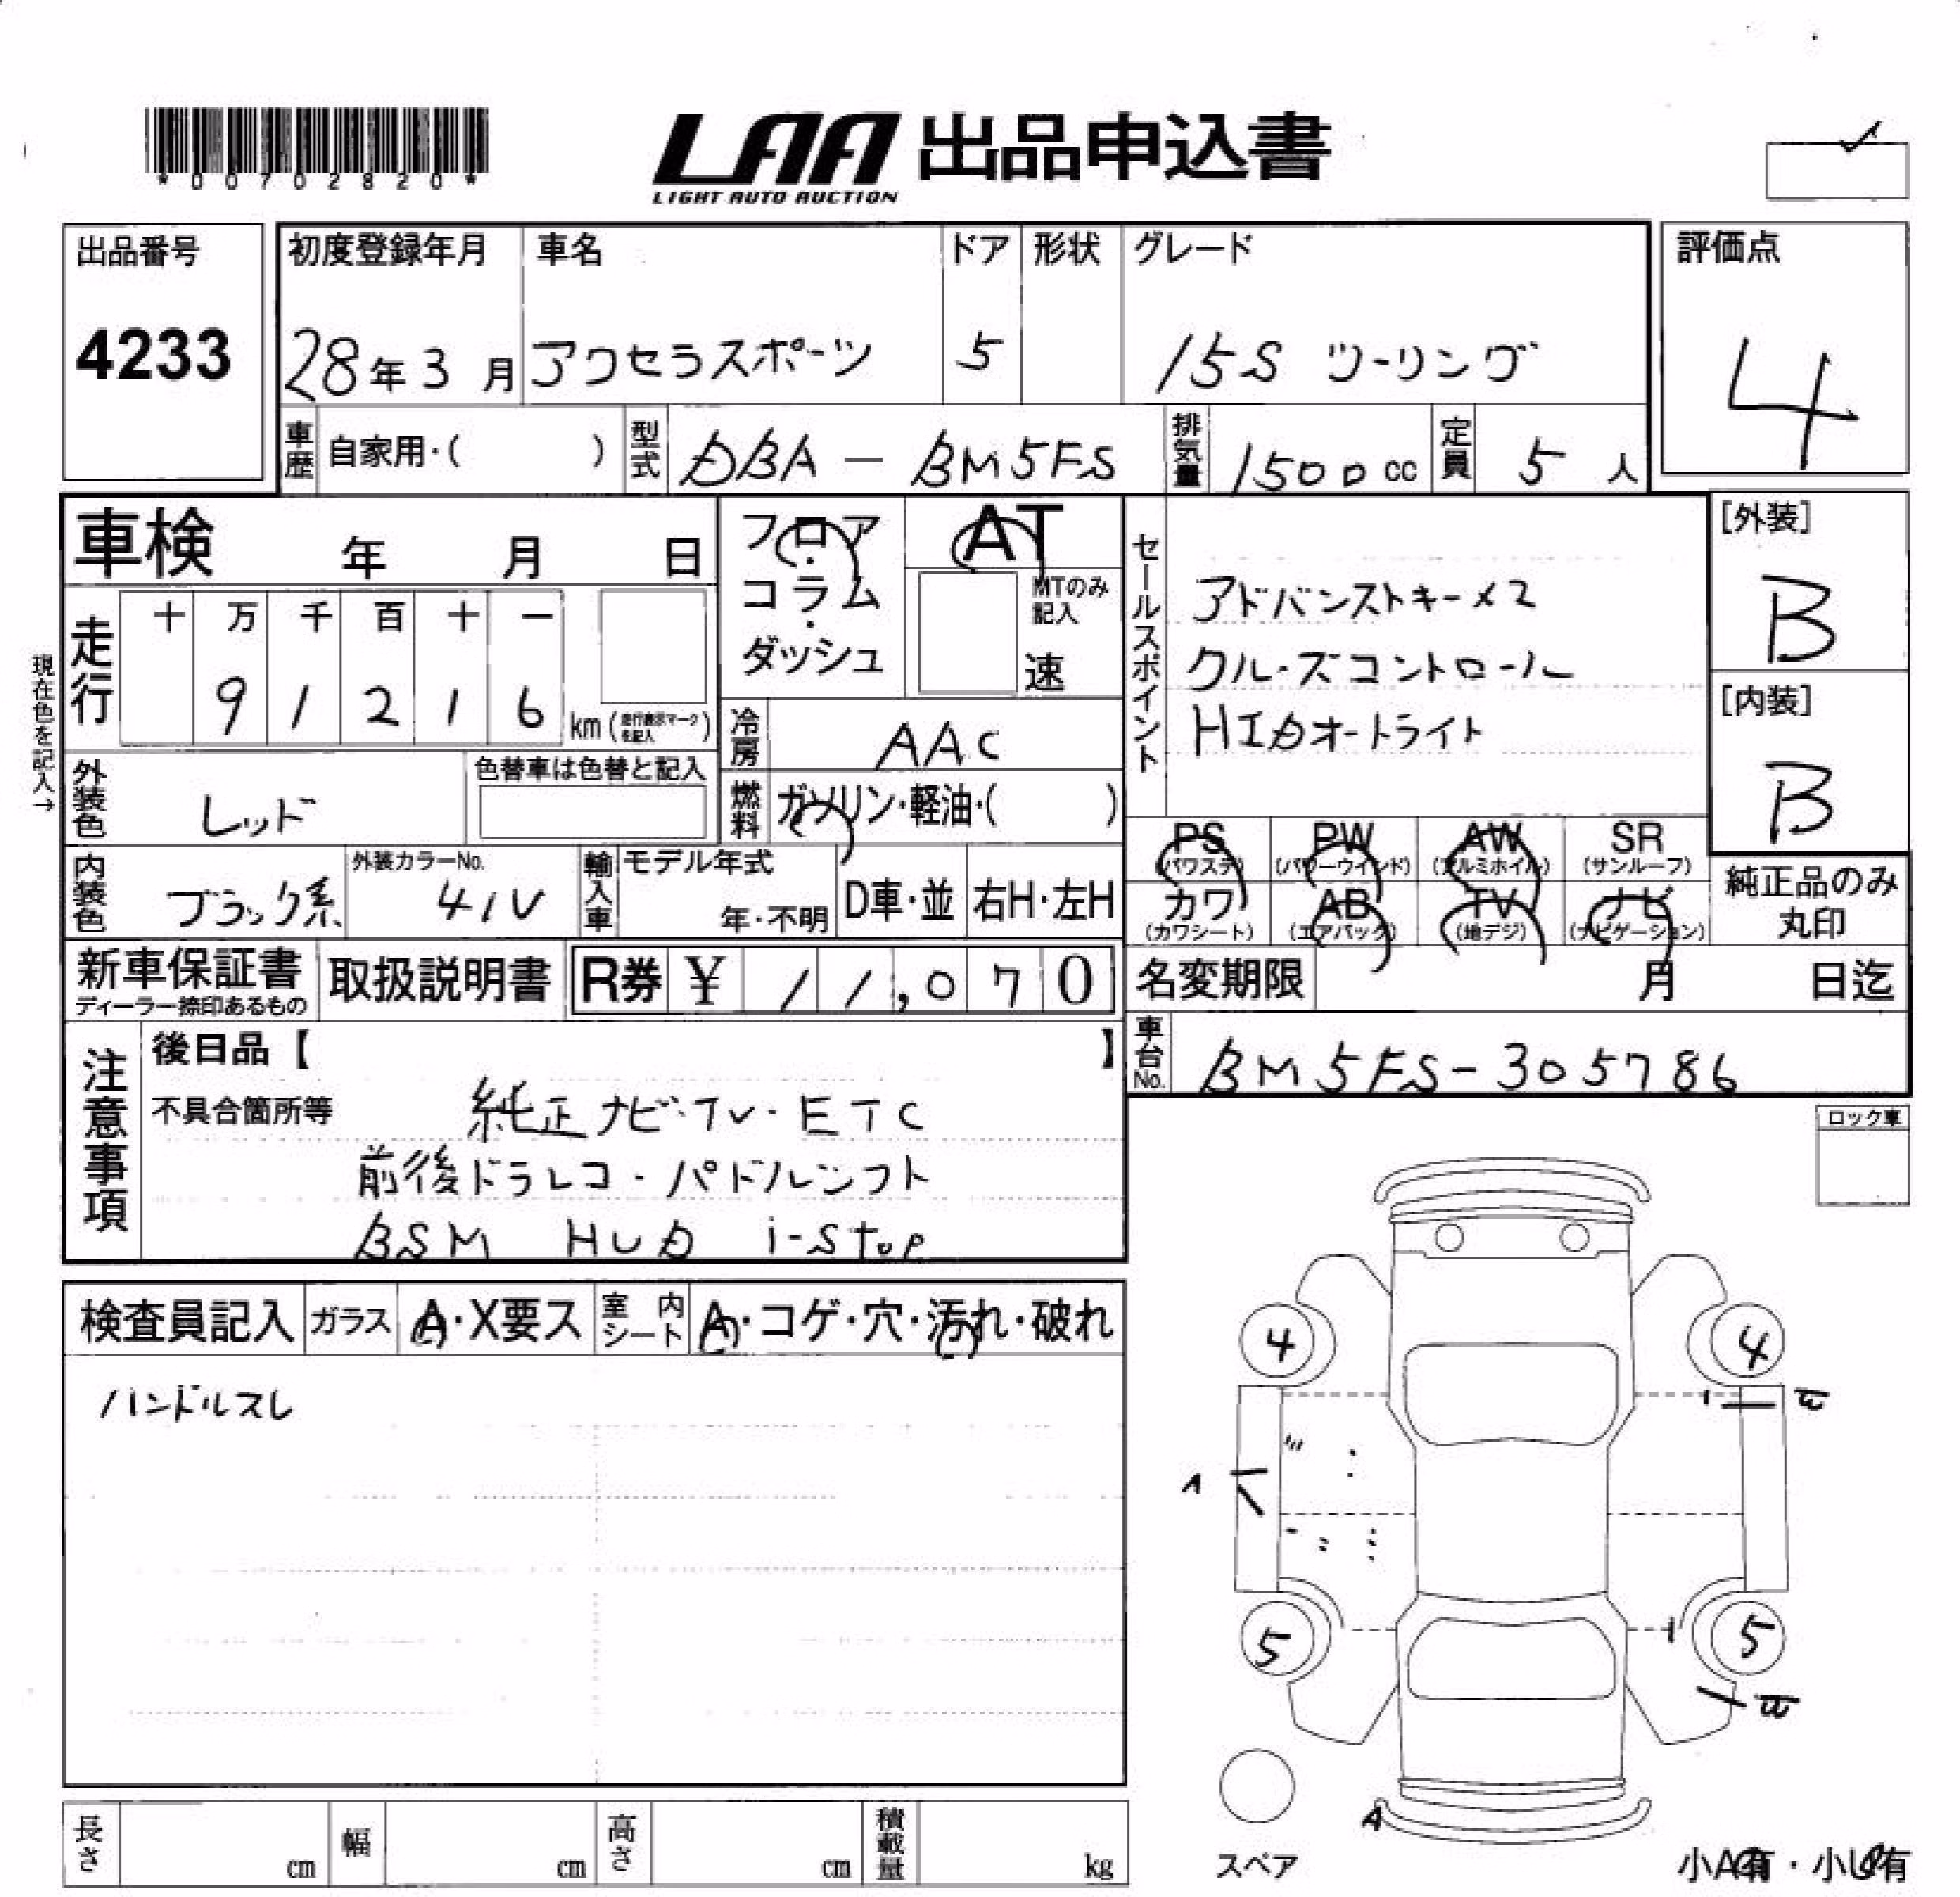 *00702820*
LAA 出品申込書
LIGHT AUTO AUCTION
出品番号
4233
初度登録年月
28年3月
車名
アクセラスポーツ
ドア
5
形状
グレード
15S ツーリング
評価点
4
車歴 自家用・( )
型式 DBA - BM5FS
排気量 1500cc
定員 5人
車検 年 月 日
フロア・コラム・ダッシュ
AT
MTのみ記入
速
セールスポイント
アドバンストキーメ2
クルーズコントロール
HIDオートライト
[外装]
B
[内装]
B
現在色を記入→
走行
十 万 千 百 十 一
9 1 2 1 6 km (走行表示マークを記入)
冷房 AAC
外装色 レッド
色替車は色替と記入
燃料 ガソリン・軽油・( )
PS (パワステ)
PW (パワーウインド)
AW (アルミホイル)
SR (サンルーフ)
カワ (カワシート)
AB (エアバック)
TV (地デジ)
ナビ (ナビゲーション)
純正品のみ丸印
内装色 ブラック系
外装カラーNo. 41V
輸入車 モデル年式 年・不明
D車・並
右H・左H
新車保証書
ディーラー捺印あるもの
取扱説明書
R券 ¥ 11,070
名変期限 月 日迄
車台No. BM5FS-305786
注意事項
後日品【 】
不具合箇所等
純正ナビ・TV・ETC
前後ドラレコ・パドルシフト
BSM HUD i-stop
ロック車
検査員記入
ガラス A・X要ス
室内シート A・コゲ・穴・汚れ・破れ
ハンドルスレ
4 4
A
5 5
A
スペア
小A有・小U有
長さ cm
幅 cm
高さ cm
積載量 kg